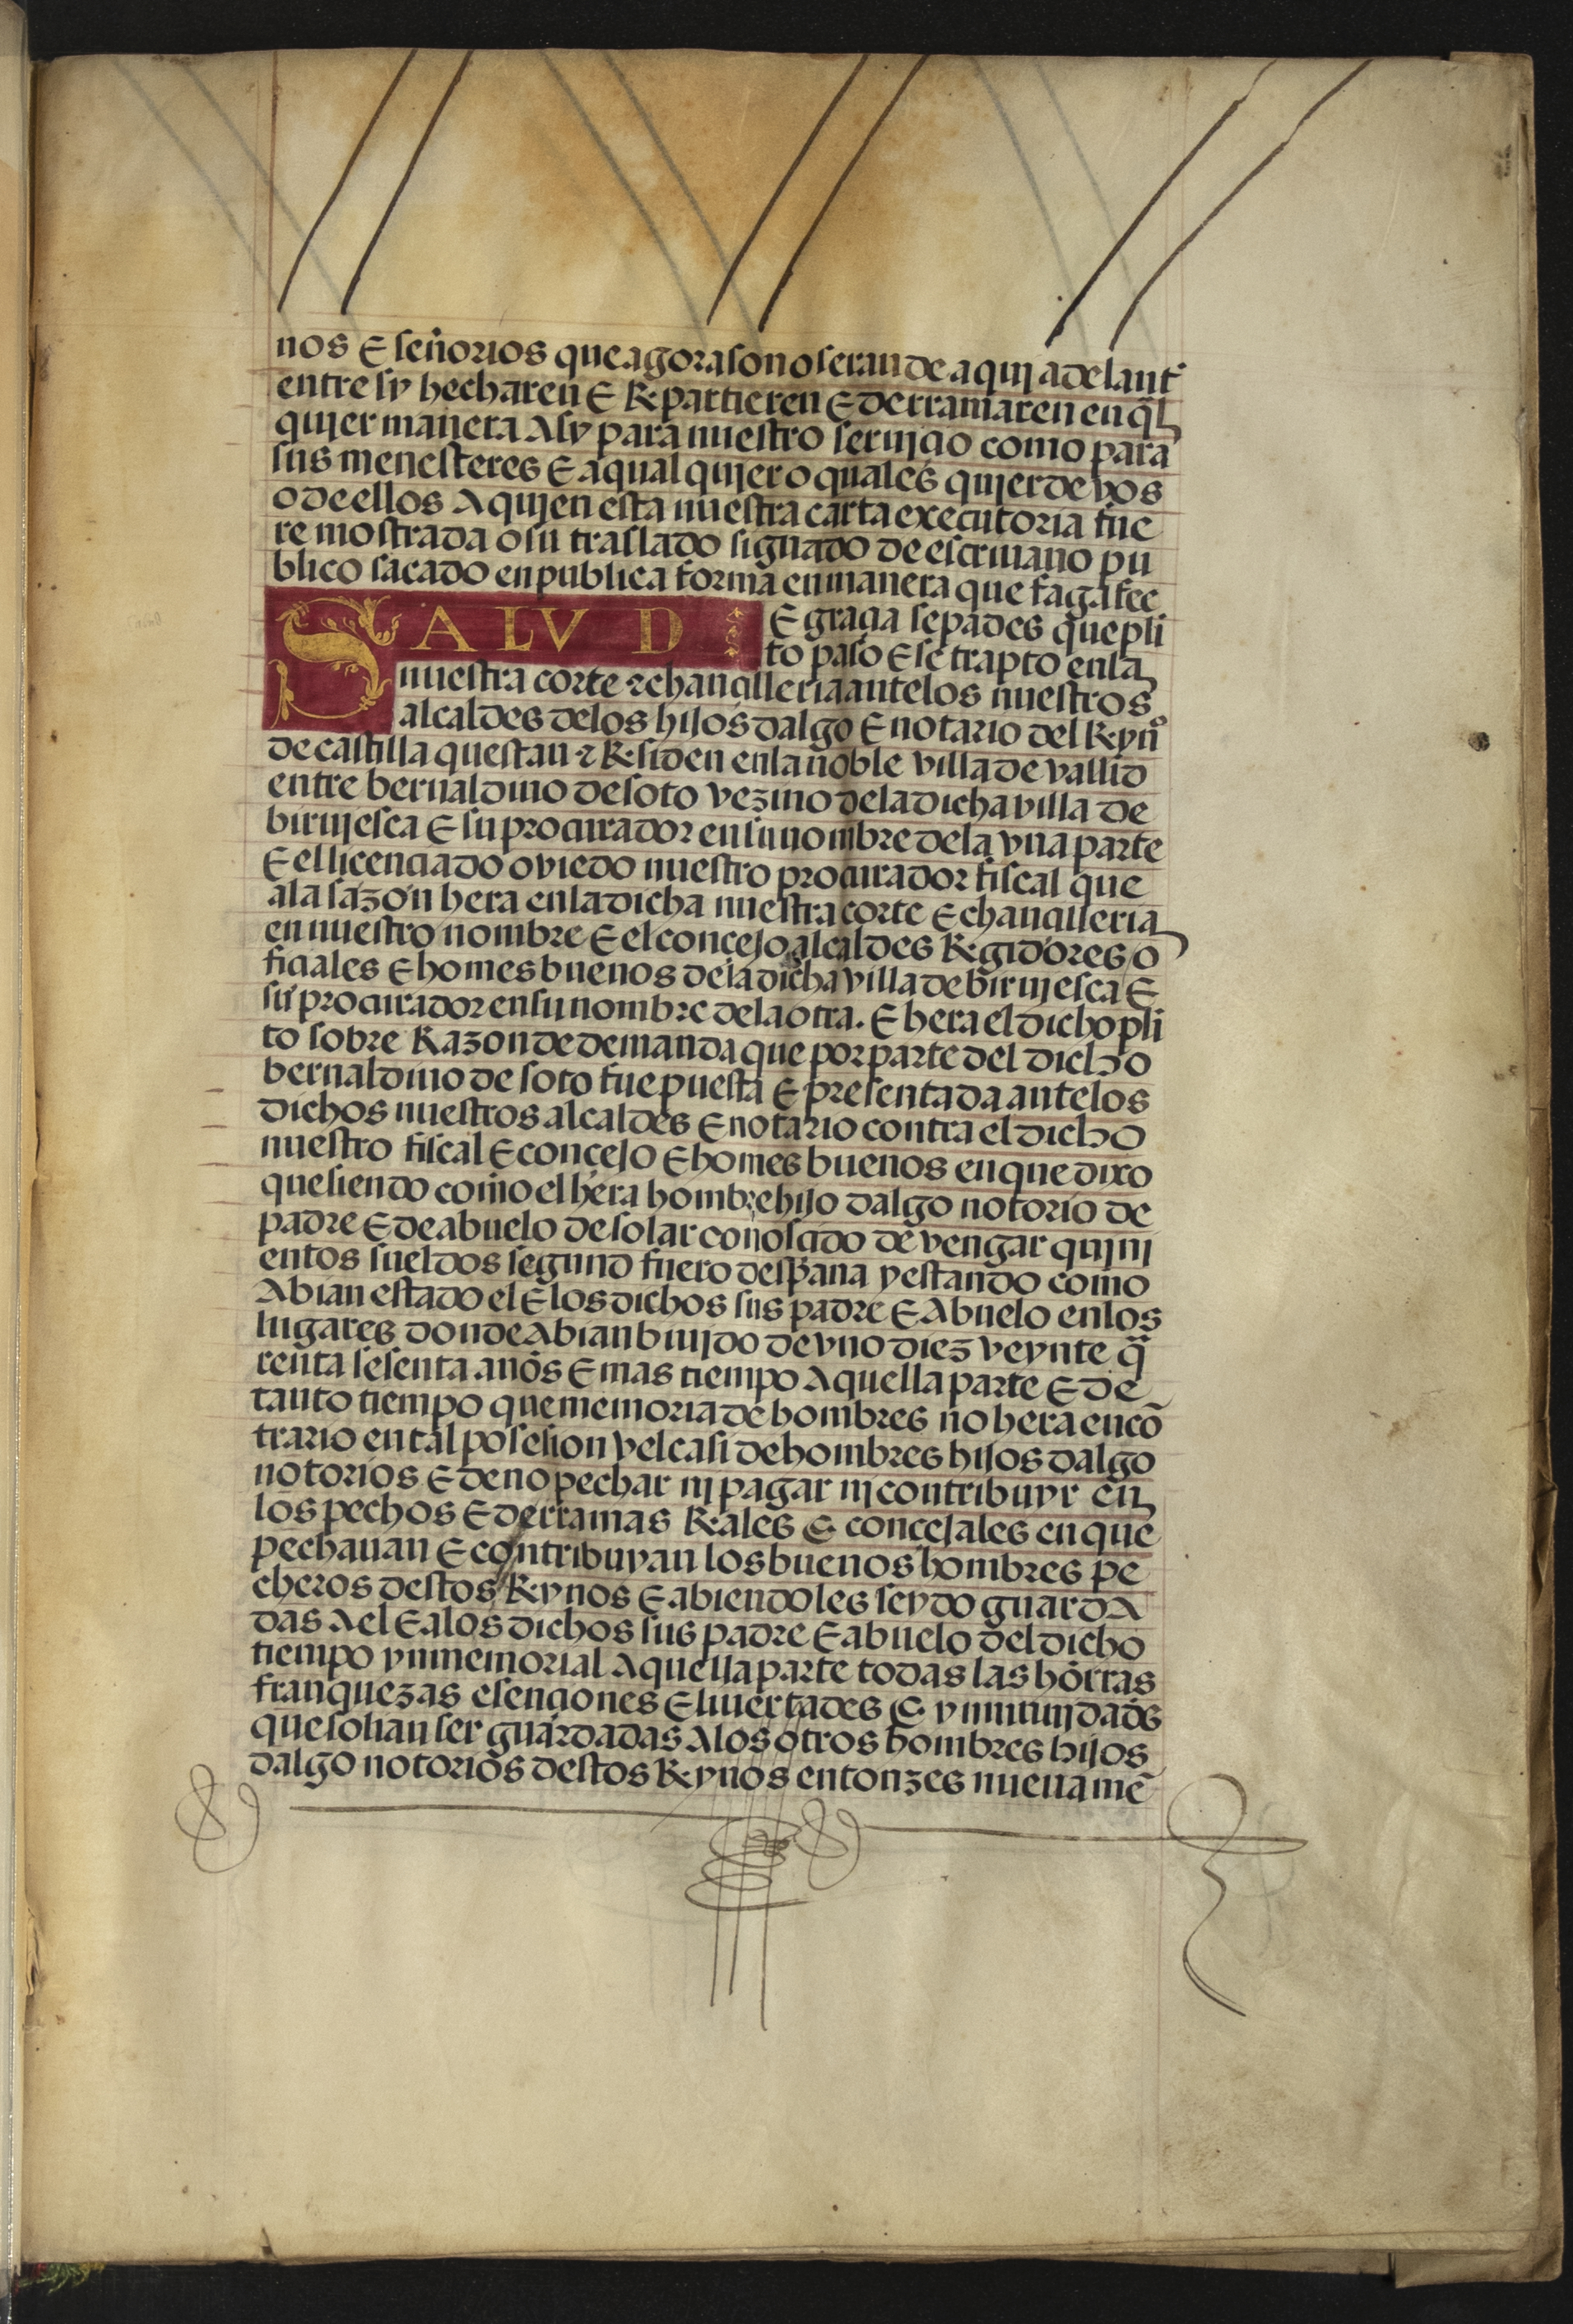 nos E señorios que agora son o seran de aqui adelant̃
entre sy hecharen E Repartieren E derramaren en q̃l
quier manera Asy para nuestro seruicio como para
sus menesteres E a qual quier o quales quier de vos
o de ellos A quien esta nuestra carta executoria fue
re mostrada o su traslado signado de escriuano pu
blico sacado en publica forma en manera que faga fee
SALVD E gracia sepades que pli
to paso E se trapto en la
nuestra corte z chancilleria ante los nuestros
alcaldes de los hijos dalgo E notario del Reynº
de castilla questan z Residen en la noble villa de vallid
entre bernaldino de soto vezino de la dicha villa de
biruiesca E su procurador en su nombre de la vna parte
E el licenciado oviedo nuestro procurador fiscal que
a la sazon hera en la dicha nuestra corte E chancilleria
en nuestro nombre E el concejo alcaldes Regidores o
ficiales E homes buenos de la dicha villa de biruiesca E
su procurador en su nombre de la otra. E hera el dicho pli
to sobre Razon de demanda que por parte del dicho
bernaldino de soto fue puesta E presentada ante los
dichos nuestros alcaldes E notario contra el dicho
nuestro fiscal E concejo E homes buenos en que dixo
que siendo como el hera hombre hijo dalgo notorio de
padre E de abuelo de solar conoscido de vengar quini
entos sueldos segund fuero despana y estando como
Abian estado el E los dichos sus padre E Abuelo en los
lugares donde Abian biuido de vno diez veynte q̃
renta sesenta años E mas tiempo A quella parte E de
tanto tiempo que memoria de hombres no hera en cõ
trario en tal posesion vel casi de hombres hijos dalgo
notorios E de no pechar ni pagar ni contribuyr en
los pechos E derramas Reales E concejales en que
pechauan E contribuyan los buenos hombres pe
cheros destos Reynos E abiendoles seydo guarda
das A el E a los dichos sus padre E abuelo del dicho
tiempo ynmemorial A quella parte todas las horras
franquezas esenciones E liuertades E ynmunidades
que solian ser guardadas A los otros hombres hijos
dalgo notorios destos Reynos entonzes nueuamẽ